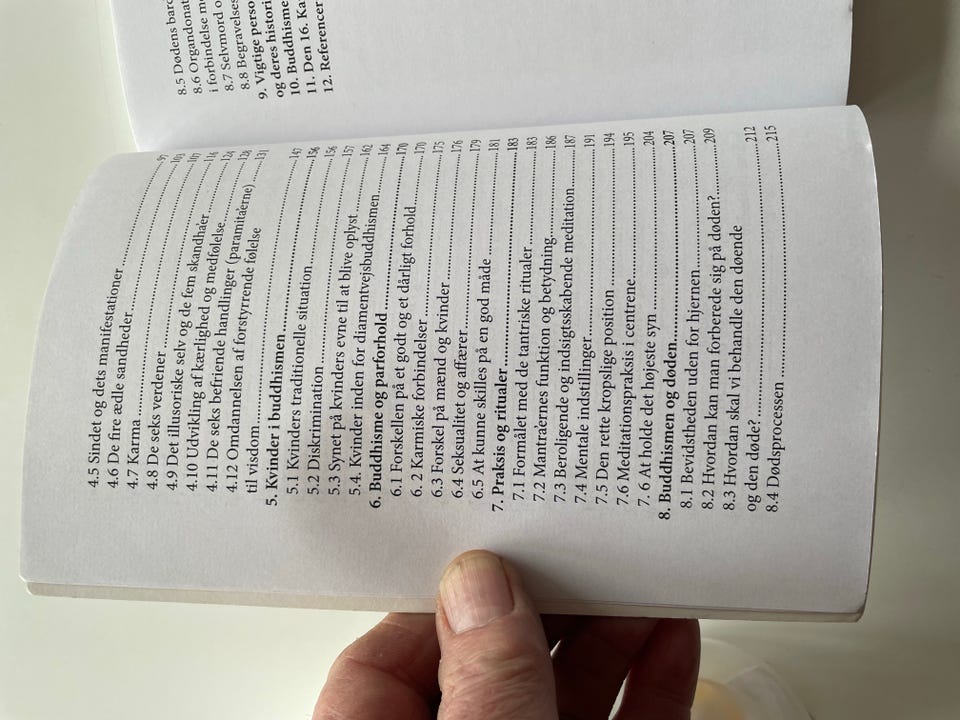 4.5 Sindet og dets manifestationer ........ 97
4.6 De fire ædle sandheder ........ 101
4.7 Karma ........ 107
4.8 De seks verdener ........ 116
4.9 Det illusoriske selv og de fem skandha'er ........ 124
4.10 Udvikling af kærlighed og medfølelse ........ 128
4.11 De seks befriende handlinger (paramita'erne) ........ 131
4.12 Omdannelsen af forstyrrende følelse
til visdom ........ 147
5. Kvinder i buddhismen ........ 156
5.1 Kvinders traditionelle situation ........ 156
5.2 Diskrimination ........ 157
5.3 Synet på kvinders evne til at blive oplyst ........ 162
5.4. Kvinder inden for diamantvejsbuddhismen ........ 164
6. Buddhisme og parforhold ........ 170
6.1 Forskellen på et godt og et dårligt forhold ........ 170
6. 2 Karmiske forbindelser ........ 175
6.3 Forskel på mænd og kvinder ........ 176
6.4 Seksualitet og affærer ........ 179
6.5 At kunne skilles på en god måde ........ 181
7. Praksis og ritualer ........ 183
7.1 Formålet med de tantriske ritualer ........ 183
7.2 Mantraernes funktion og betydning ........ 186
7.3 Beroligende og indsigtsskabende meditation ........ 187
7.4 Mentale indstillinger ........ 191
7.5 Den rette kropslige position ........ 194
7.6 Meditationspraksis i centrene ........ 195
7. 6 At holde det højeste syn ........ 204
8. Buddhismen og døden ........ 207
8.1 Bevidstheden uden for hjernen ........ 207
8.2 Hvordan kan man forberede sig på døden? ........ 209
8.3 Hvordan skal vi behandle den døende
og den døde? ........ 212
8.4 Dødsprocessen ........ 215
8.5 Dødens
8.6
i forbindelse
8.7 Selvmord
8.8
9. Vigtige
og deres
10.
11. Den 16.
12. Referencer